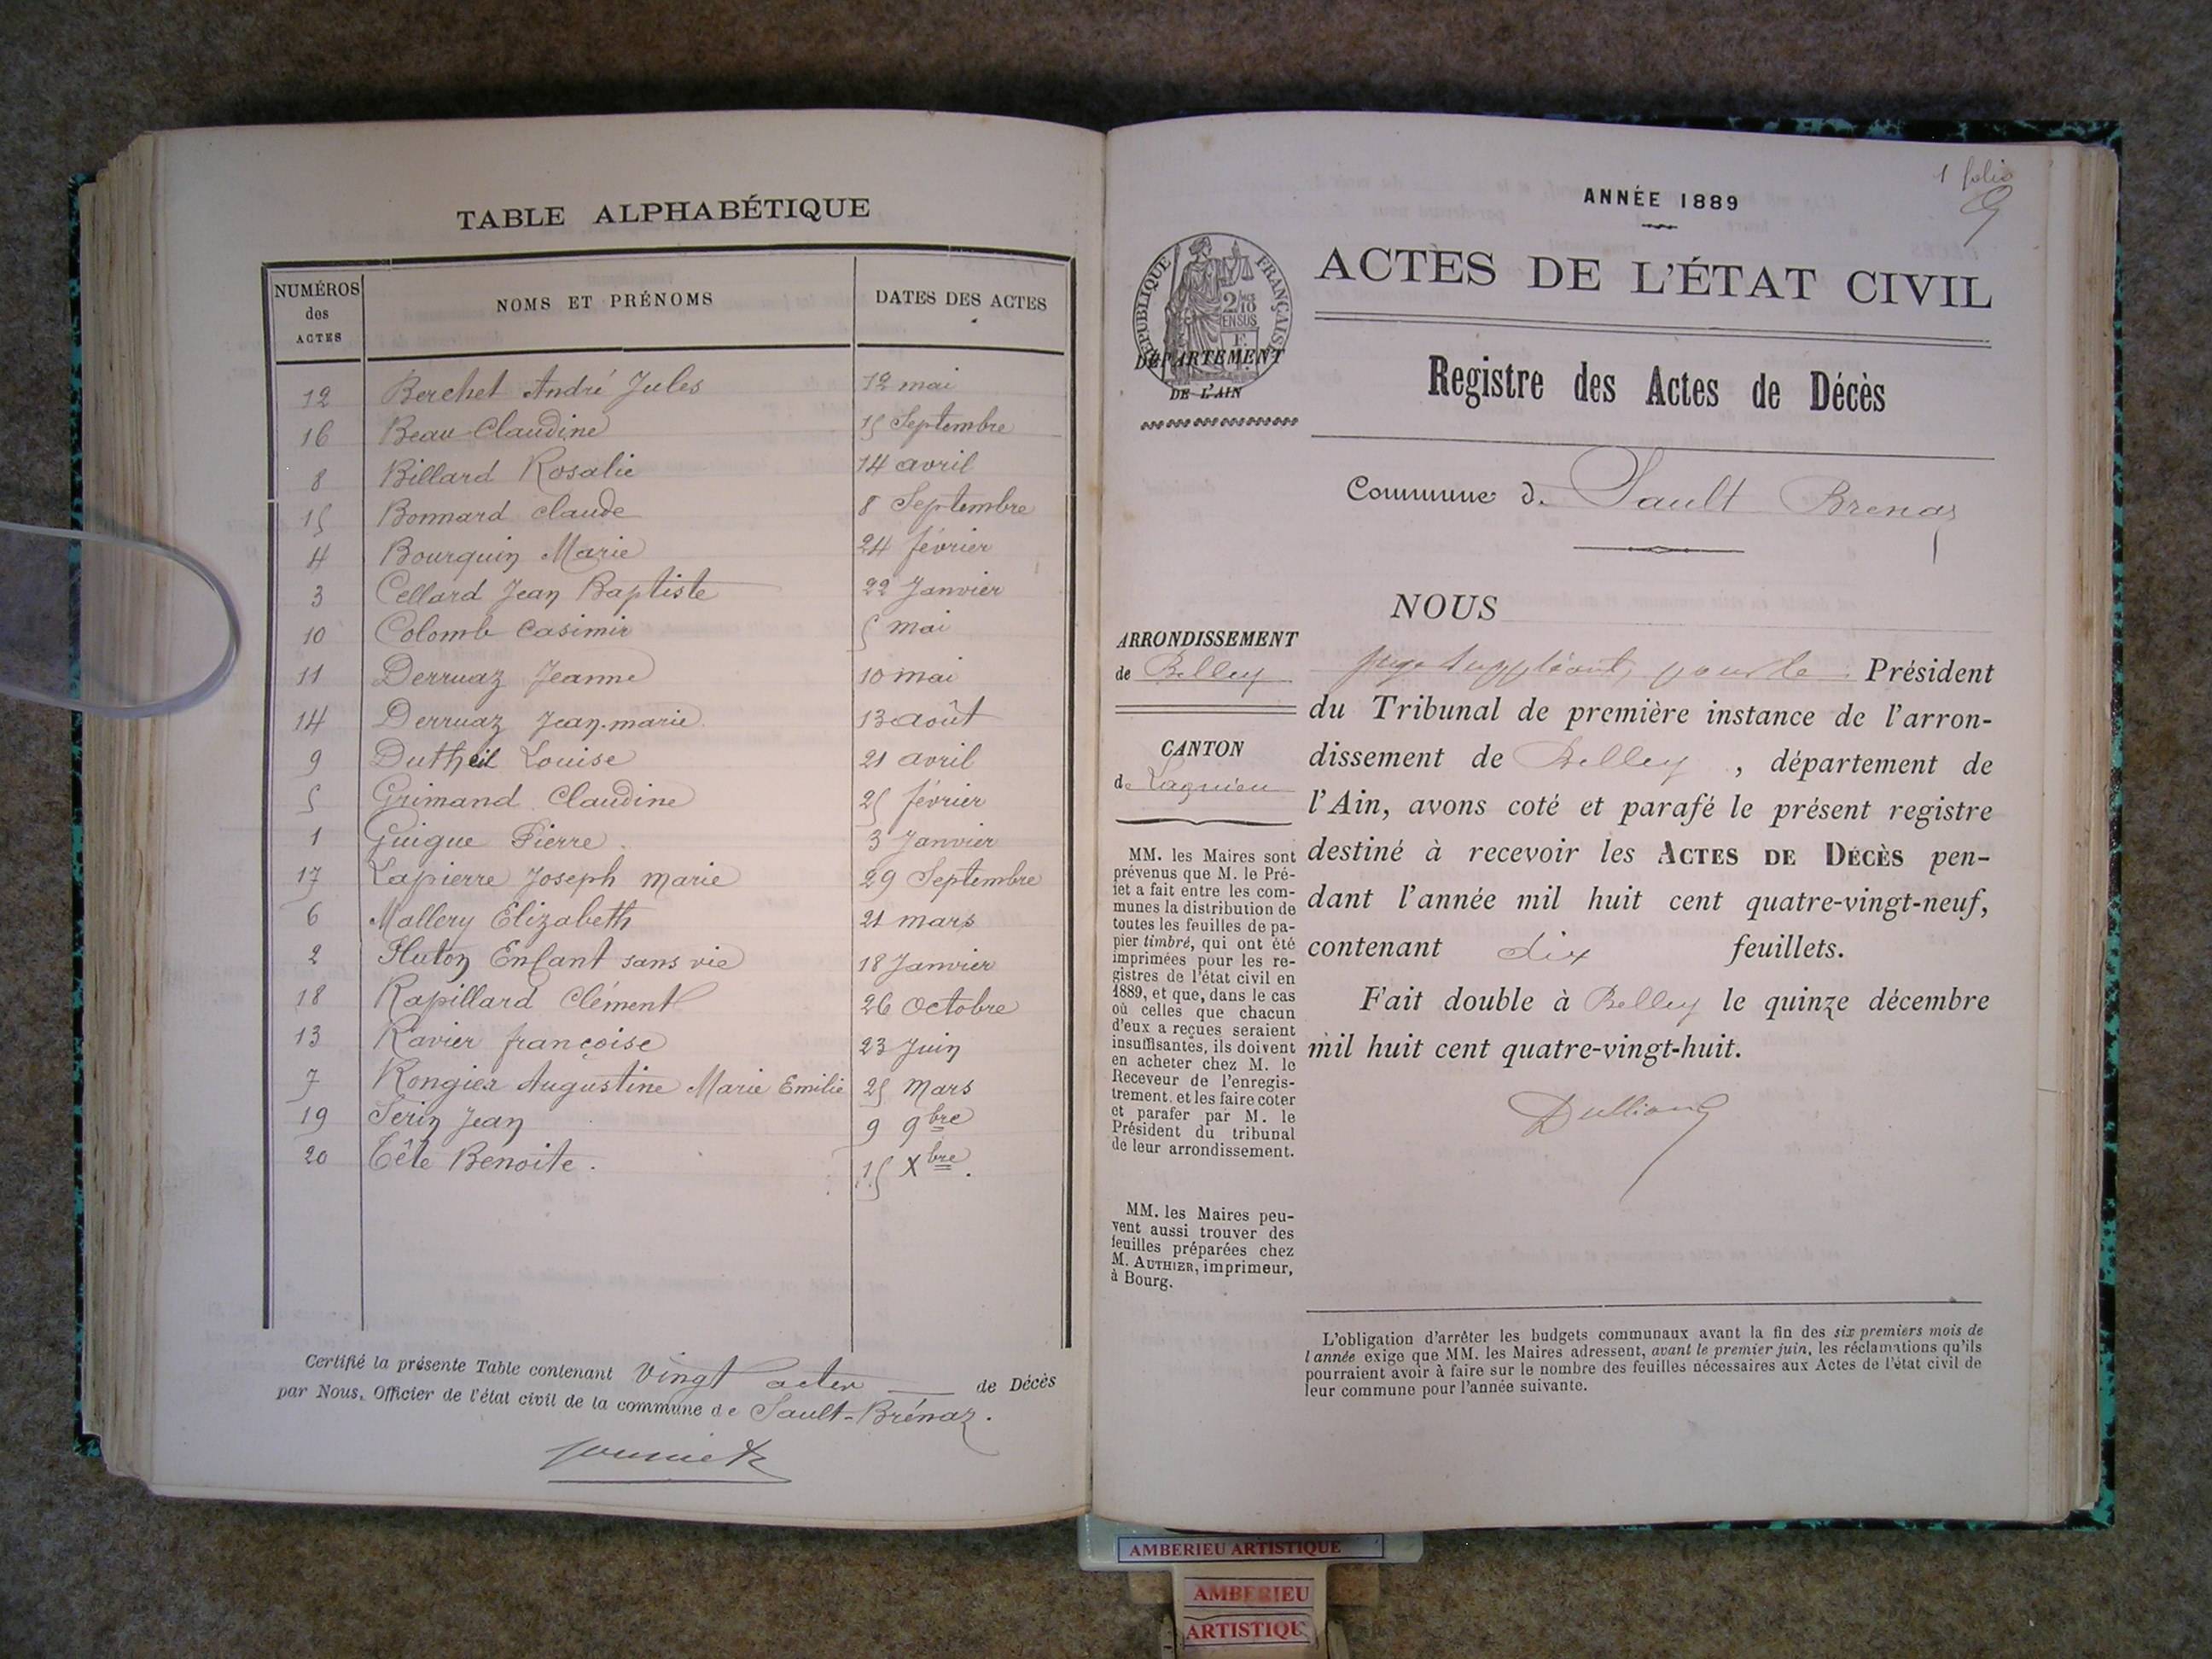 TABLE ALPHABÉTIQUE
NUMÉROS des ACTES NOMS ET PRÉNOMS DATES DES ACTES
12 Berchet André Jules 12 mai
16 Beau Claudine 15 Septembre
8 Billard Rosalie 14 avril
15 Bonnard Claude 8 Septembre
4 Bourquin Marie 24 février
3 Cellard Jean Baptiste 22 Janvier
10 Colomb Casimir 5 mai
11 Derruaz Jeanne 10 mai
14 Derruaz Jean-marie 13 août
9 Dutheil Louise 21 avril
5 Grimand Claudine 25 février
1 Guigue Pierre 3 Janvier
17 Lapierre Joseph marie 29 Septembre
6 Mallery Elizabeth 21 mars
2 Pluton Enfant sans vie 18 Janvier
18 Rapillard Clément 26 Octobre
13 Ravier françoise 23 Juin
7 Rongier Augustine Marie Emilie 25 Mars
19 Serin Jean 9 9bre
20 Tête Benoite. 15 Xbre.
Certifié la présente Table contenant Vingt actes de Décès
par Nous, Officier de l'état civil de la commune de Sault-Brénaz.
1 folio
ANNÉE 1889
RÉPUBLIQUE FRANÇAISE
2/10 EN SUS
DÉPARTEMENT
DE L'AIN
ACTES DE L'ÉTAT CIVIL
Registre des Actes de Décès
Commune de Sault Brenaz
ARRONDISSEMENT
de Belley
CANTON
de Lagnieu
MM. les Maires sont
prévenus que M. le Pré-
fet a fait entre les com-
munes la distribution de
toutes les feuilles de pa-
pier timbré, qui ont été
imprimées pour les re-
gistres de l'état civil en
1889, et que, dans le cas
où celles que chacun
d'eux a reçues seraient
insuffisantes, ils doivent
en acheter chez M. le
Receveur de l'enregis-
trement, et les faire coter
et parafer par M. le
Président du tribunal
de leur arrondissement.
MM. les Maires peu-
vent aussi trouver des
feuilles préparées chez
M. AUTHIER, imprimeur,
à Bourg.
NOUS
Juge Suppléant, pour le Président
du Tribunal de première instance de l'arron-
dissement de Belley, département de
l'Ain, avons coté et parafé le présent registre
destiné à recevoir les ACTES DE DÉCÈS pen-
dant l'année mil huit cent quatre-vingt-neuf,
contenant dix feuillets.
Fait double à Belley le quinze décembre
mil huit cent quatre-vingt-huit.
L'obligation d'arrêter les budgets communaux avant la fin des six premiers mois de
l'année exige que MM. les Maires adressent, avant le premier juin, les réclamations qu'ils
pourraient avoir à faire sur le nombre des feuilles nécessaires aux Actes de l'état civil de
leur commune pour l'année suivante.
AMBERIEU ARTISTIQUE
AMBERIEU
ARTISTIQU